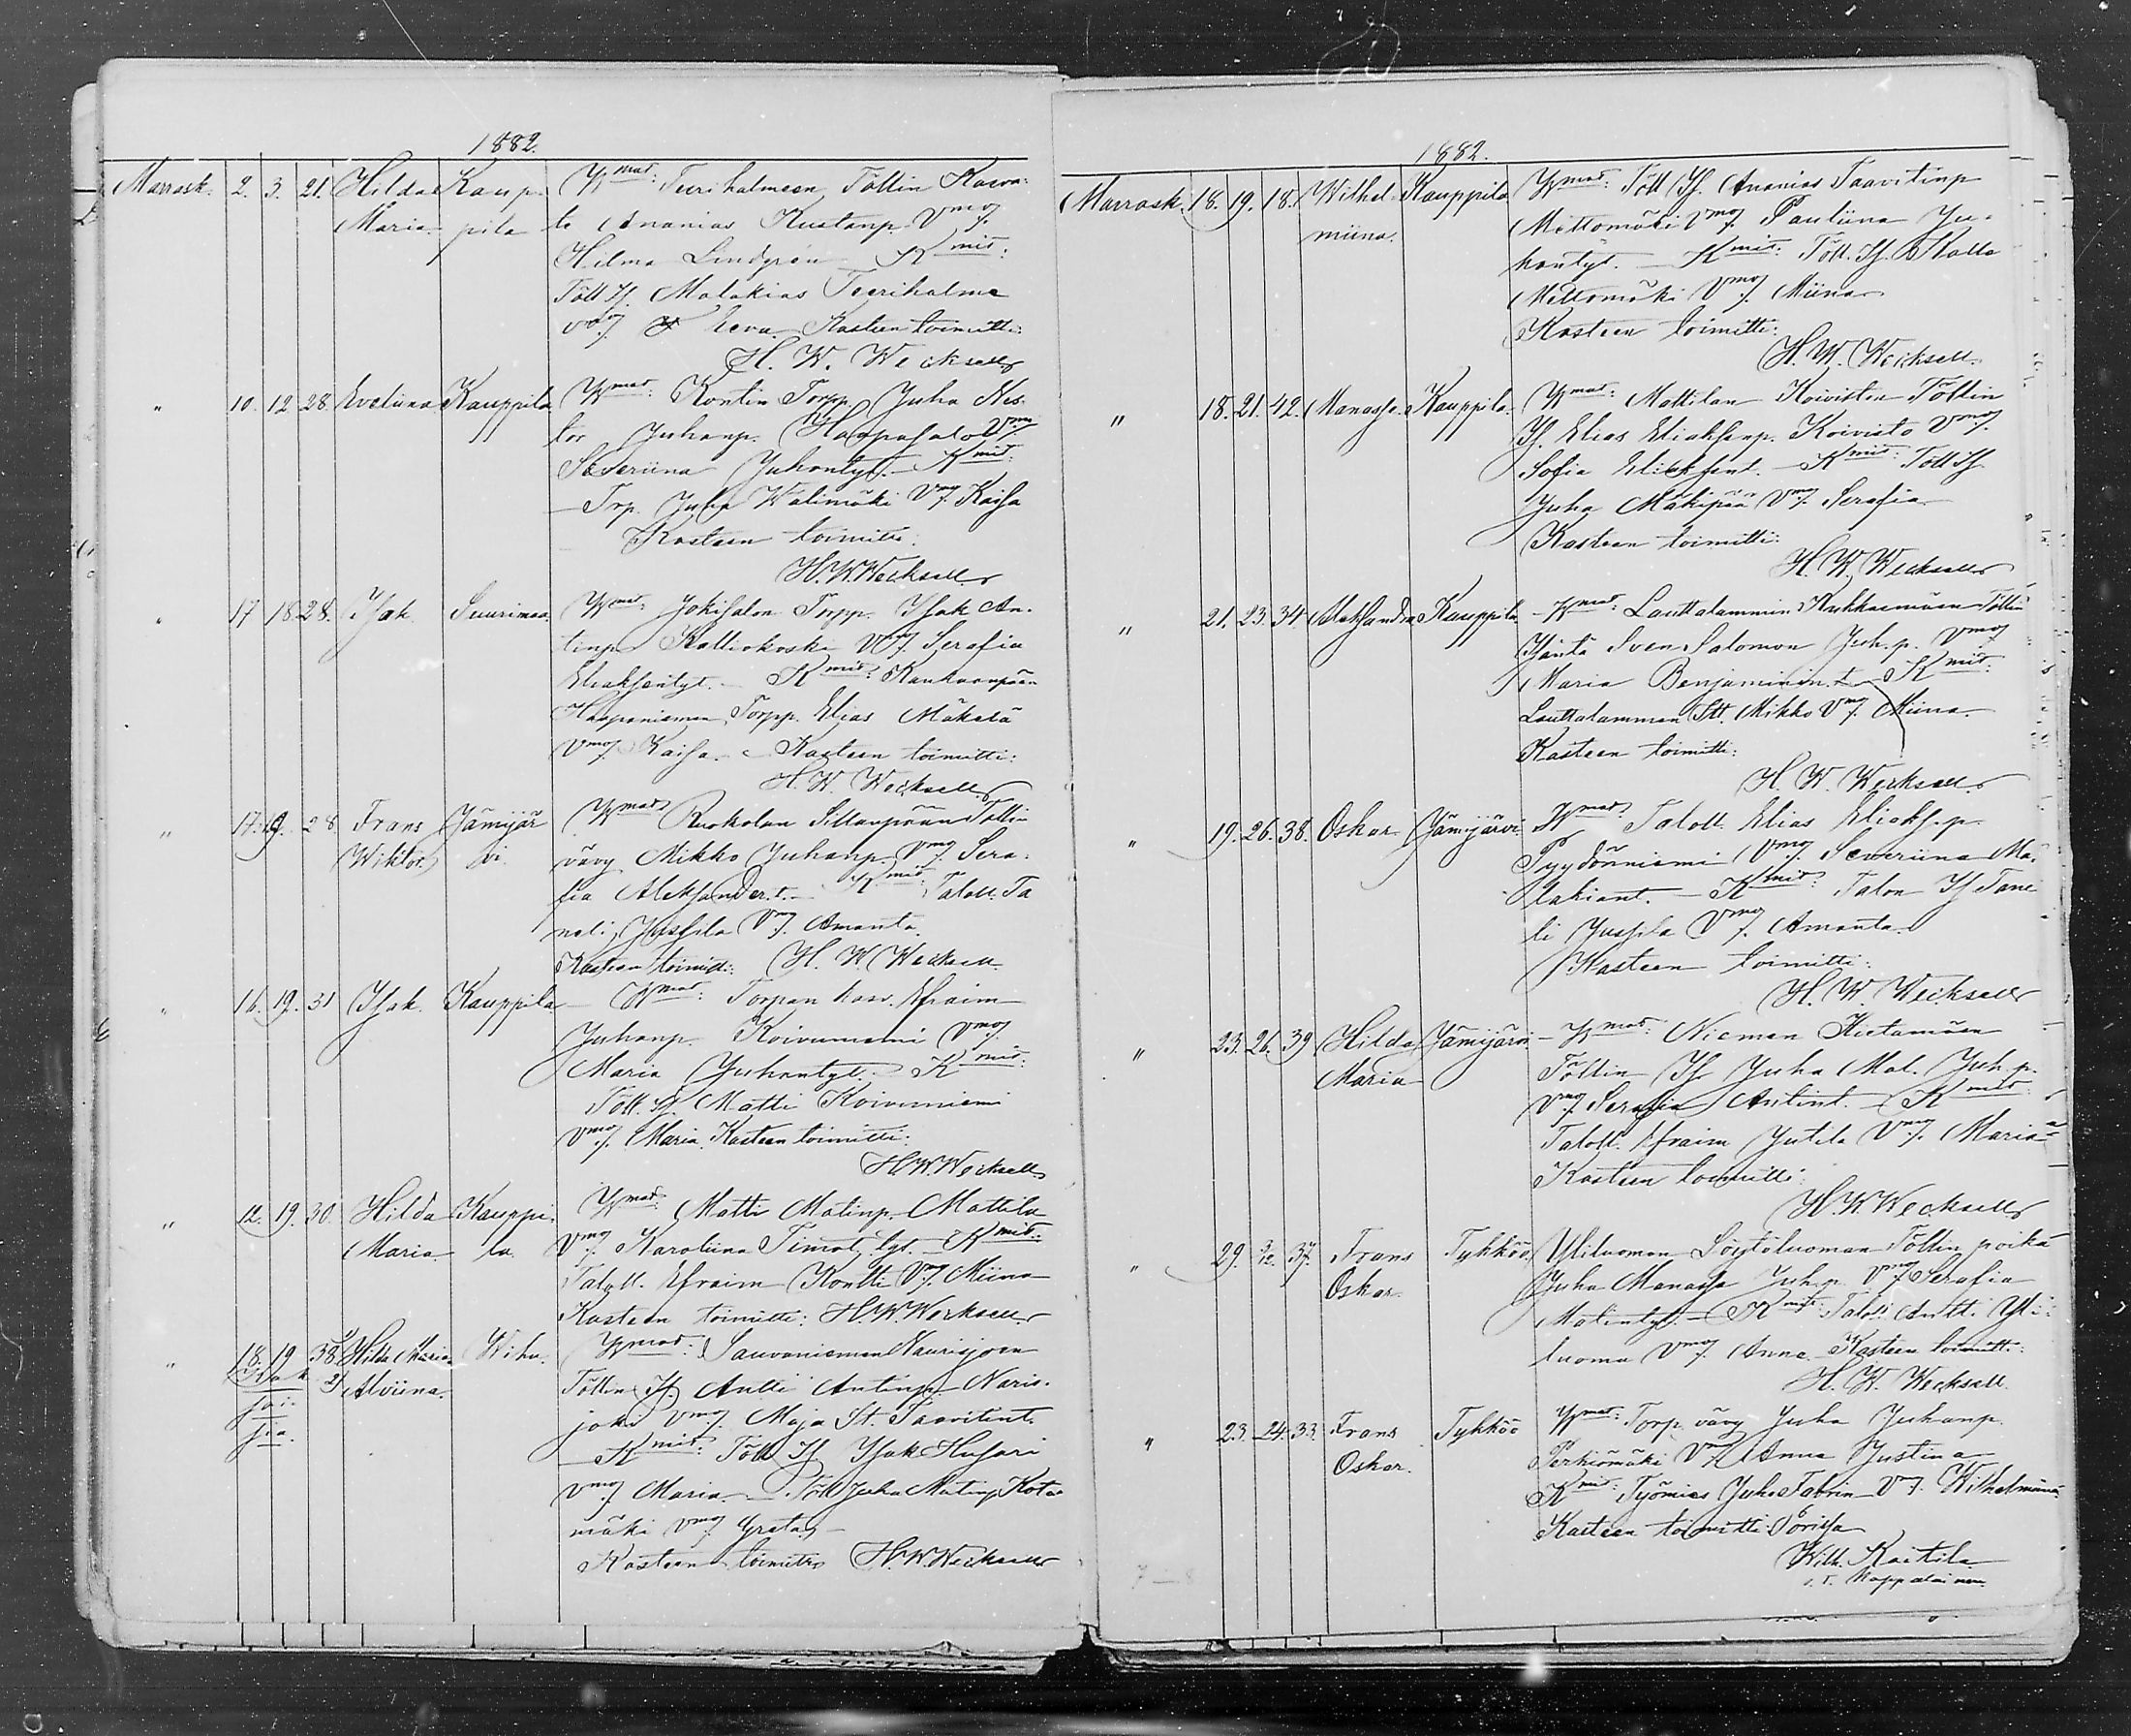 1882.
Marrask. 2. 3. 21. Hilda Kaup- Wmat: Teeriholmeen Töllin Kasva-
Maria pila to Ananias Kustanp. Vmo/.
Hilma Lindgrén Kmit:
Töll If. Malakias Teeriholma
Vmo/. Eeva Kasteen toimitti:
H. W. Wecksell
" 10. 12 28 Eveliina Kauppila Wmat: Kontin Torpp. Juha Nes-
tor Juhanp. Haapasalo Vmo/
Severiina Juhontyt. Kmit:
Trp. Juha Välimäki Vmo/. Kaisa
Kasteen toimitti:
H. W. Wecksell
" 17 18 28. Isak Suurimaa Wmat: Jokisalon Torpp. Isak An-
tinp. Kalliokoski Vmo/. Serafia
Eliaksentyt. Kmit: Kankaanpään
Haapaniemen Torpp. Elias Mäkelä
Vmo/. Kaisa. Kasteen toimitti:
H. W. Wecksell
" 17. 19. 28. Frans Jämijär Wmat: Ruokolan Sillanpään Töllin
Wiktor vi. vävy Mikko Juhanp. Vmo/. Sera-
fia Aleksander.t. Kmit: Taloll. Ta
neli Jussila Vmo/. Amanta.
Kasteen toimitti: H. W. Wecksell
" 16. 19. 31 Isak Kauppila Wmat: Torpan kasv. Efraim
Juhanp. Koivuniemi Vmo/
Maria Juhontyt. Kmit:
Töll. If. Matti Koivuniemi
Vmo/. Maria. Kasteen toimitti:
H. W. Wecksell
" 12. 19. 30. Hilda Kauppi- Wmat: Matti Matinp. Mattila
Maria la. Vmo/. Karoliina Timot. tyt. Kmit:
Taloll. Efraim Kontti Vmo/. Miina
Kasteen toimitti: H. W. Wecksell
" 18. 19 38. Hilda Maria Wihu. Wmat: Sauvoniemen Naurisjoen
2) Alviina. Töllin If. Antti Antinp. Naris-
joki Vmo/. Maja St. Taavitint.
Kmit: Töll If Isak Husari
Vmo/ Maria Töll Juha Matinp. Kota
mäki Vmo/. Greta
Kasteen toimitti H. W. Wecksell
1882.
Marrask. 18. 19. 18. Wilhel- Kauppila Wmat: Töll If. Ananias Taavitinp
miina. Mettomäki Vmo/. Pauliina Ju-
hontyt. Kmit: Töll. If. Kalle
Mettomäki Vmo/. Miina
Kasteen toimitti:
H. W. Wecksell.
" 18. 21. 42. Manasse Kauppila Wmat: Mattilan Koiviston Töllin
If. Elias Eliaksenp. Koivisto Vmo/.
Sofia Eliaksent. Kmit: Töll If
Juha Mäkipää Vmo/. Serafia
Kasteen toimitti:
H. W. Wecksell
" 21. 23. 34. Aleksandra Kauppila Wmat: Lauttalammin Kuhhamäen Töllin
Isäntä Sven Salomon Juh.p. Vmo/
Maria Benjaminin.t. Kmit:
Lauttalammen Mikko Vmo/. Miina.
Kasteen toimitti:
H. W. Wecksell
" 19. 26. 38. Oskar Jämijärvi Wmat: Taloll. Elias Eliaks.p.
Pyydönniemi Vmo/. Severiina Ma-
lakiant. Kmit: Talon If Tane
li Jussila Vmo/. Amanta
Kasteen toimitti:
H. W. Wecksell
" 23. 26. 39 Hilda Jämijärvi Wmat: Niemen Hietamäen
Maria Töllin If Juha Mal. Juh.p.
Vmo/ Serafia Antint. Kmit
Taloll. Efraim Jutila Vmo/. Maria
Kasteen toimitti:
H. W. Wecksell
" 29. 37. Frans Tykköö Yliluoman Töllin poika
Oskar. Juha Manasse Juh.p. Vmo/ Serafia
Matintyt. Kmit: Taloll Antti Yli-
luoma Vmo/. Anna. Kasteen toimitti:
H. W. Wecksell.
" 23. 24. 33. Frans Tykköö Wmat: Torp. vävy Juha Juhanp.
Oskar. Perkiömäki Vmo/. Anna Justina
Kmit: Työmies Juha Fabrin Vmo/. Wilhelmiina
Kasteen toimitti Porissa
Wilh. Kaitila
v.t. Kappalainen.